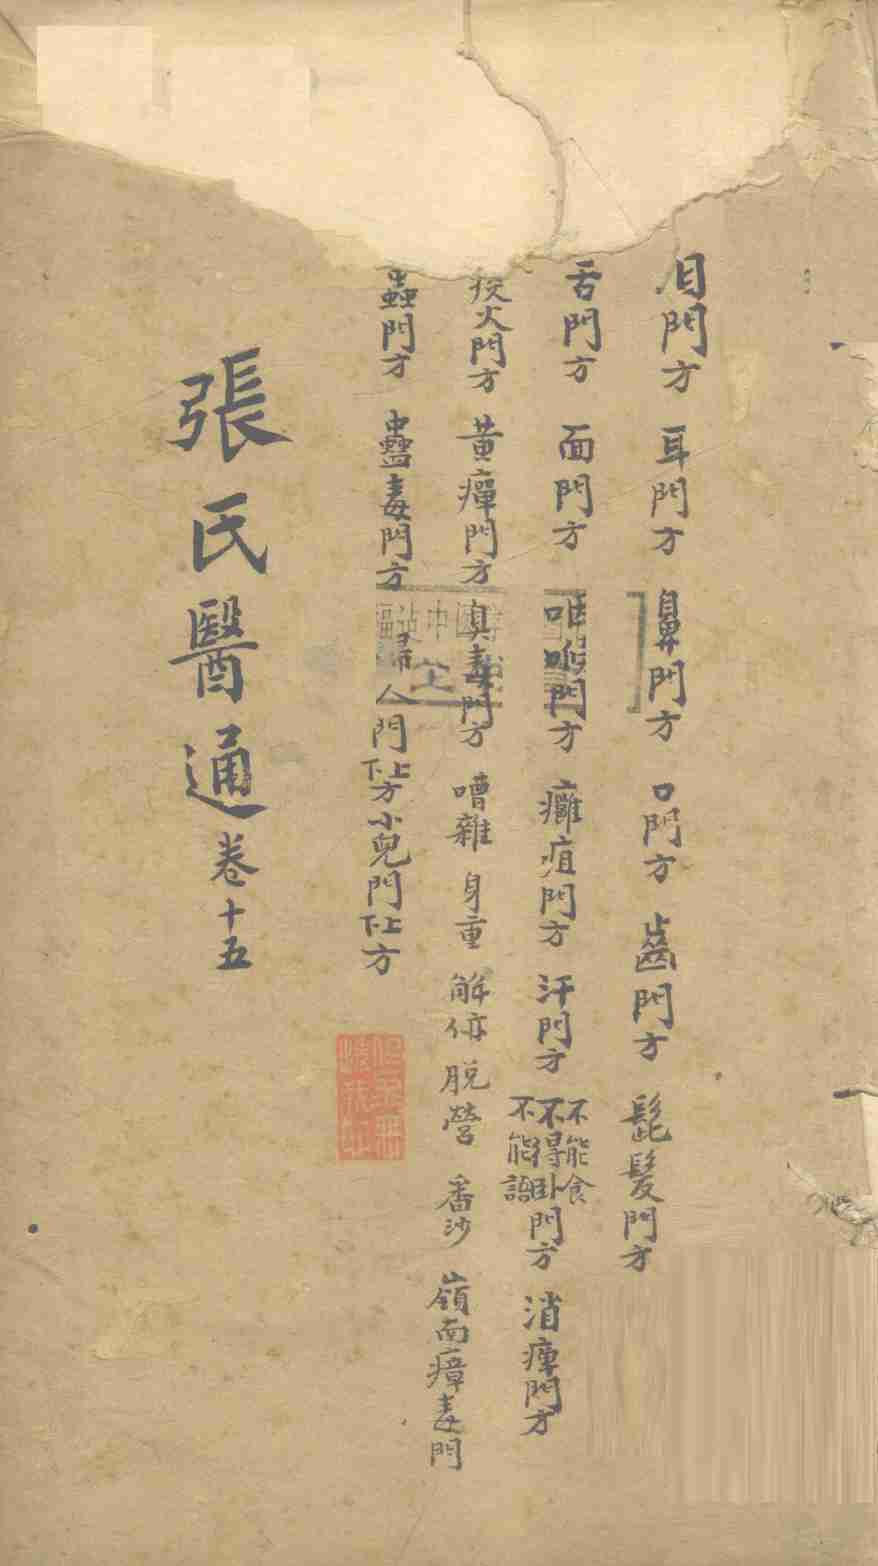 目門方 耳門方 鼻門方 口門方 齒門方 髭髮門方
舌門方 面門方 咽喉門方 癰疽門方 汗門方 不能食不得臥不能語門方 消癉門方
火門方 黃癉門方 毒門方 嘈雜 身重 解㑊 脫營 番沙 嶺南瘴毒門
蟲門方 蠱毒門方 婦人門上下方 小兒門上下方
張氏醫通卷十五